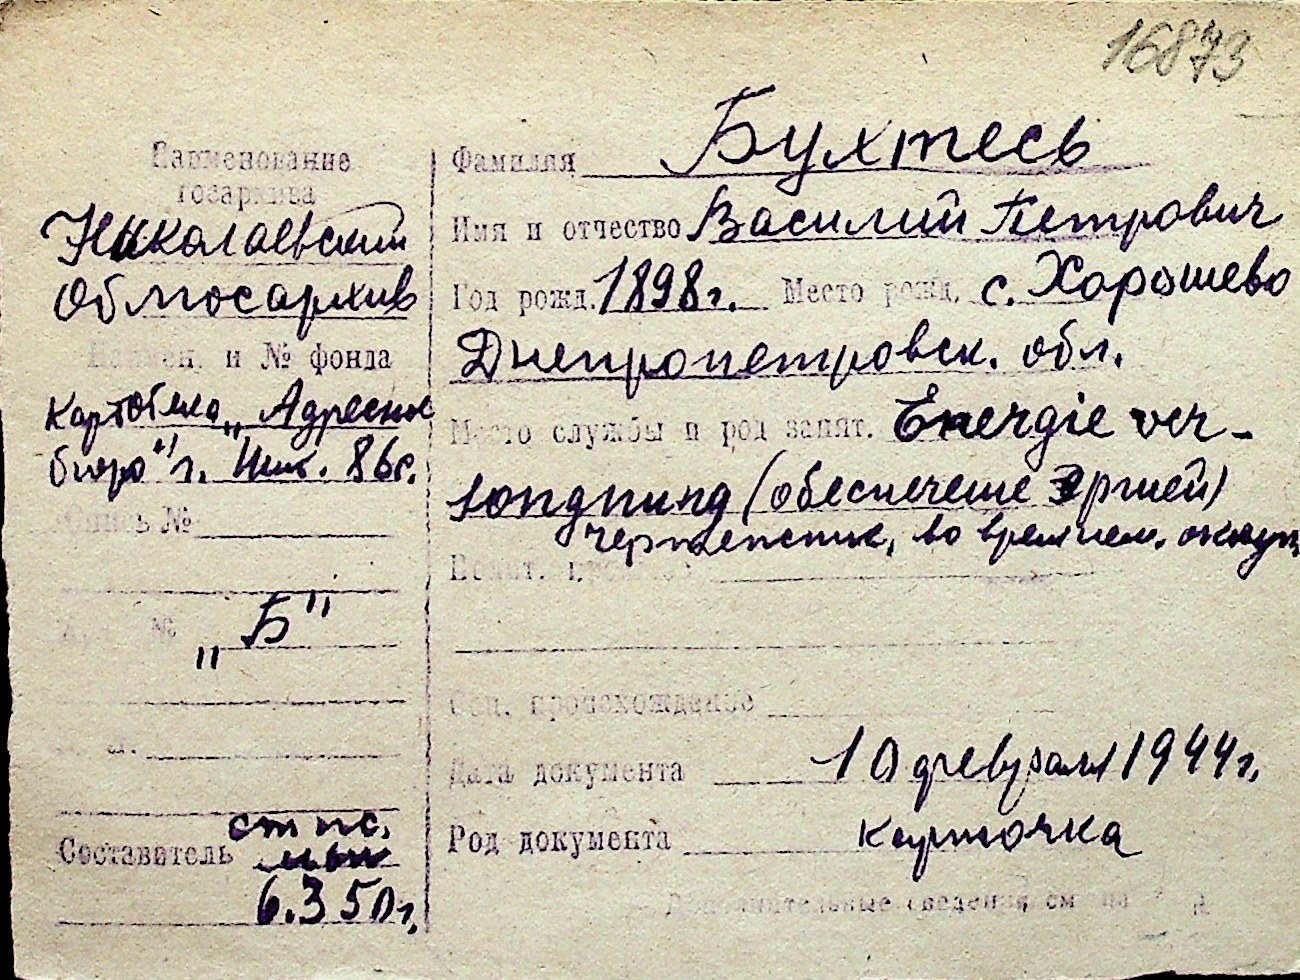 16873
Наименование
госархива
Николаевский
Облгосархив
Наимен. и № фонда
Картотека „Адресное
бюро" г. Ник. 86с.
Опись №
„Б"
Составитель
6.3 50 г.
Фамилия Бухтесь
Имя и отчество Василий Петрович
Год рожд. 1898 г. Место рожд. с. Хорошево
Днепропетровск. обл.
Место службы и род занят. Energie ver-
sorgnung (обеспечение эргией)
во времнем. оккуп.
Соц. происхождение
Дата документа 10 февраля 1944 г.
Род документа карточка
Дополнительные сведения см на